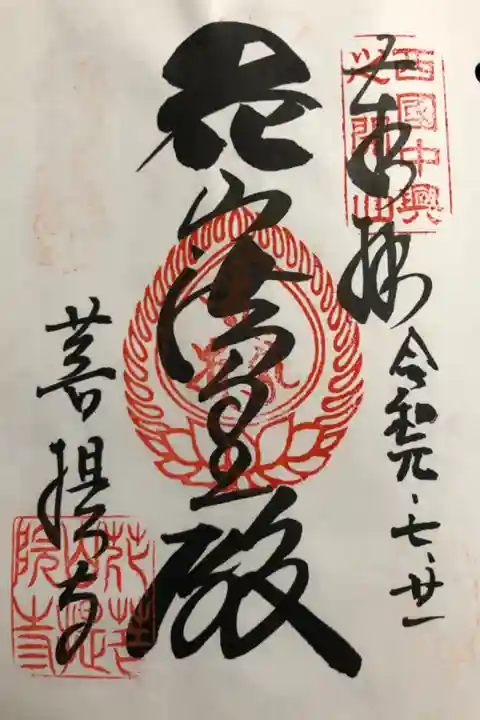 奉拝
令和元、七、廿一
西國中興
花山法皇殿
菩提寺
花山院
菩提寺